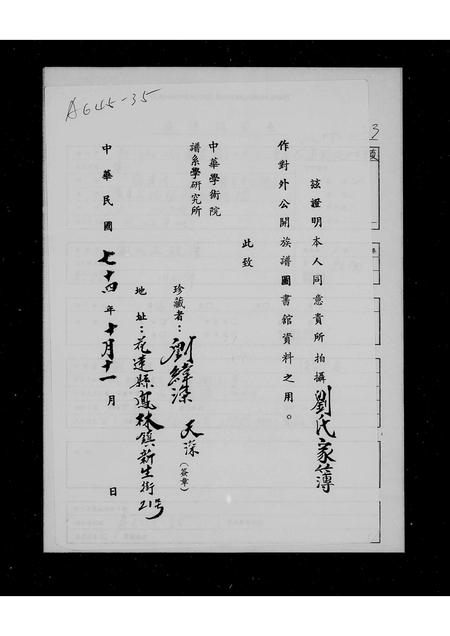 A645-35
茲證明本人同意貴所拍攝劉氏家簿
作對外公開族譜圖書館資料之用。
此致
中華學術院
譜系學研究所
珍藏者：劉緯深 天深(簽章)
地址：花蓮縣鳳林鎮新生街21号
中華民國七十四年十月十一月日